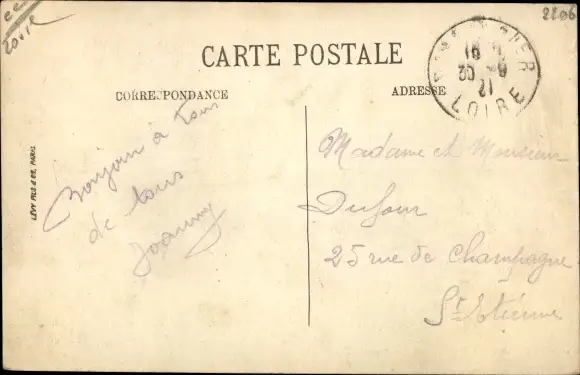 Loire
2206
CARTE POSTALE
CORRESPONDANCE
ADRESSE
LOIRE
Bonjour à tous
de tous
Joanny
Madame et Monsieur
Dufour
25 rue de Champagne
St-Etienne
LÉVY FILS & Cie, PARIS.